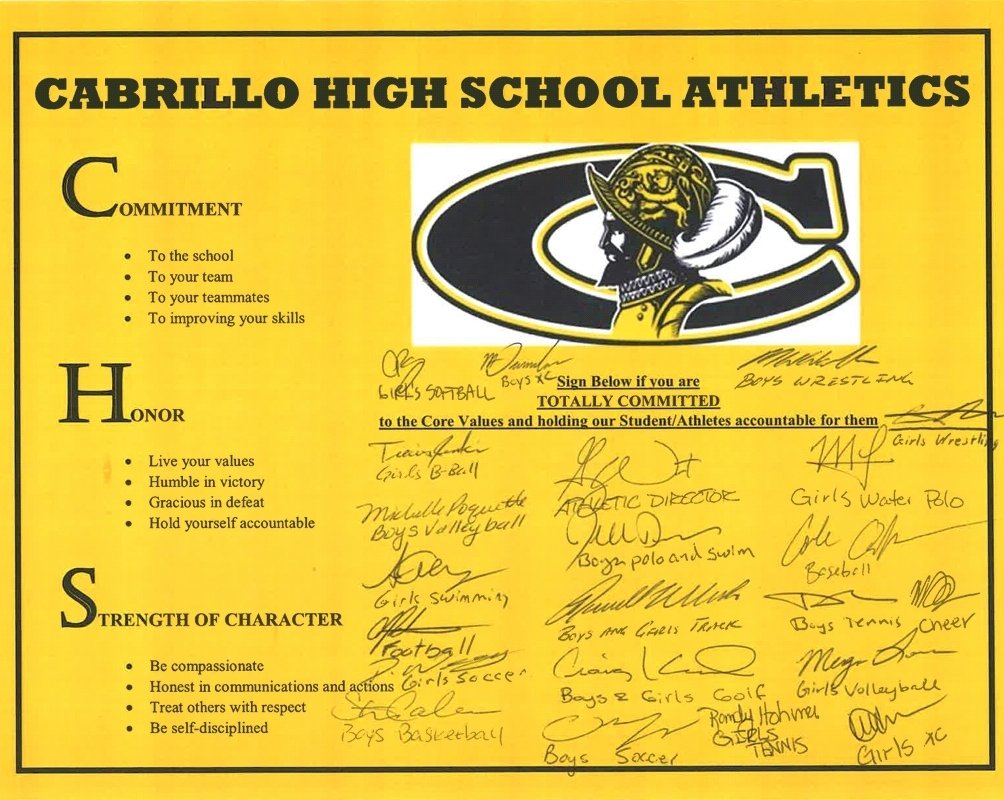 CABRILLO HIGH SCHOOL ATHLETICS
COMMITMENT
• To the school
• To your team
• To your teammates
• To improving your skills
HONOR
• Live your values
• Humble in victory
• Gracious in defeat
• Hold yourself accountable
STRENGTH OF CHARACTER
• Be compassionate
• Honest in communications and actions
• Treat others with respect
• Be self-disciplined
GIRL'S SOFTBALL
Boys XC
BOYS WRESTLING
Sign Below if you are
TOTALLY COMMITTED
to the Core Values and holding our Student/Athletes accountable for them
Girls Wrestling
Girls B-Ball
ATHLETIC DIRECTOR
Girls Water Polo
Michelle Poquette
Boys Volleyball
Boys polo and swim
Cole
Baseball
Girls Swimming
BOYS AND GIRLS TRACK
Boys Tennis
Cheer
Football
Girls Soccer
Craig
Boys & Girls Golf
Megan
Girls Volleyball
Boys Basketball
Boys Soccer
Randy
GIRLS
TENNIS
Girls XC